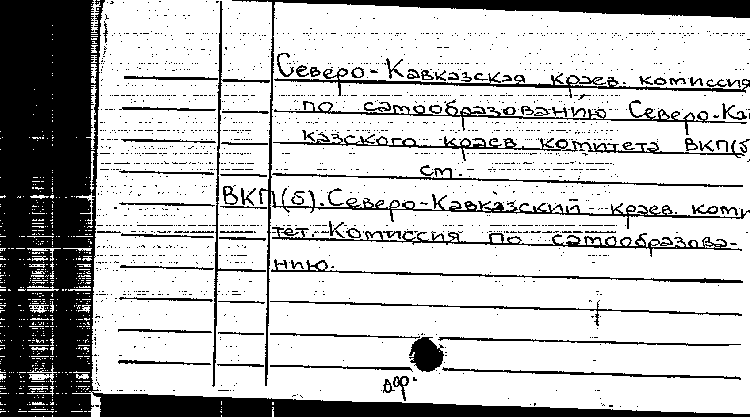 Северо-Кавказская краев. комиссия
по самообразованию Северо-Кав
казского краев. комитета ВКП(б
см.
ВКП(б). Северо-Кавказский краев. коми
тет. Комиссия по самообразова-
нию.